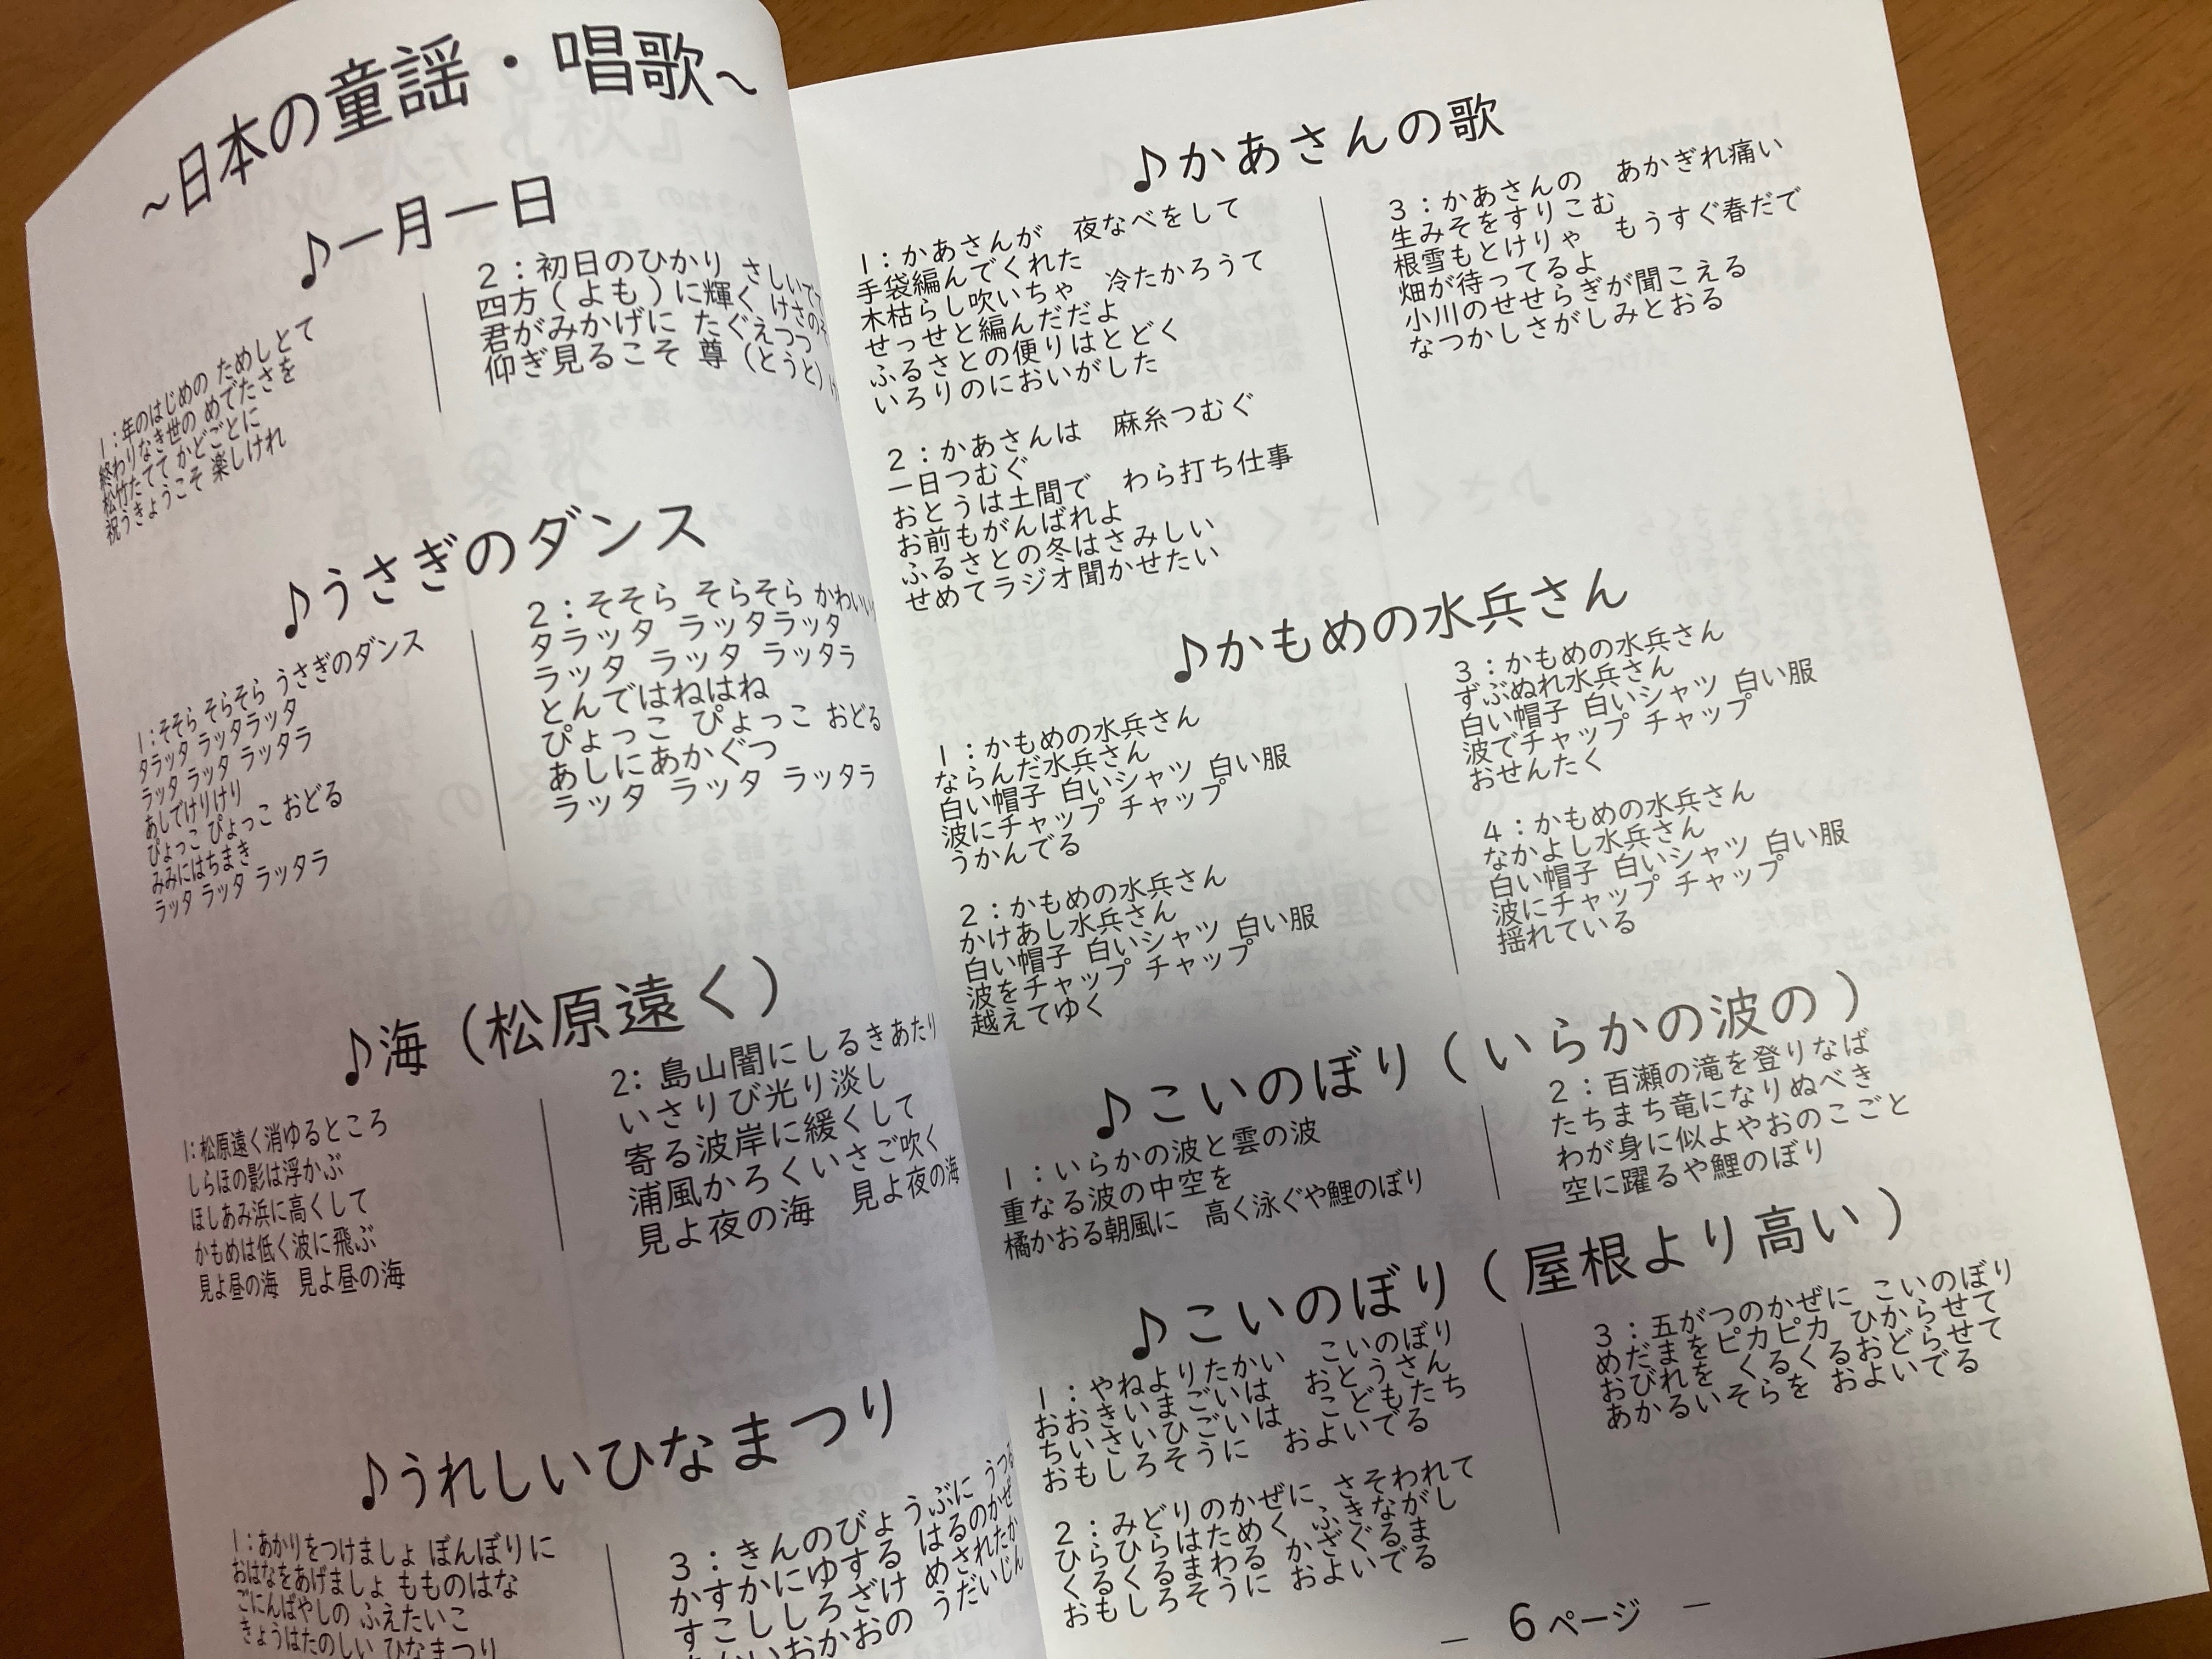 ~日本の童謡・唱歌~
♪一月一日
1:年のはじめの ためしとて
終わりなき世の めでたさを
松竹たてて かどごとに
祝うきょうこそ 楽しけれ
2:初日のひかり さしいで
四方(よも)に輝く けさの
君がみかげに たぐえつつ
仰ぎ見るこそ 尊(とうと)
♪うさぎのダンス
1:そそら そらそら うさぎのダンス
タラッタ ラッタラッタ
ラッタ ラッタ ラッタラ
あしでけりけり
ぴょっこ ぴょっこ おどる
みみにはちまき
ラッタ ラッタ ラッタラ
2:そそら そらそら かわいい
タラッタ ラッタラッタ
ラッタ ラッタ ラッタラ
とんではねはね
ぴょっこ ぴょっこ おどる
あしにあかぐつ
ラッタ ラッタ ラッタラ
♪海(松原遠く)
1:松原遠く消ゆるところ
しらほの影は浮かぶ
ほしあみ浜に高くして
かもめは低く波に飛ぶ
見よ昼の海 見よ昼の海
2:島山闇にしるきあたり
いさりび光り淡し
寄る波岸に緩くして
浦風かろくいさご吹く
見よ夜の海 見よ夜の海
♪うれしいひなまつり
1:あかりをつけましょ ぼんぼりに
おはなをあげましょ もものはな
ごにんばやしの ふえたいこ
きょうはたのしい ひなまつり
3:きんのびょうぶに うつる
かすかにゆする はるのかぜ
すこししろざけ めされたか
おかおの うだいじん
♪かあさんの歌
1:かあさんが 夜なべをして
手袋編んでくれた
木枯らし吹いちゃ 冷たかろうて
せっせと編んだだよ
ふるさとの便りはとどく
いろりのにおいがした
2:かあさんは 麻糸つむぐ
一日つむぐ
おとうは土間で わら打ち仕事
お前もがんばれよ
ふるさとの冬はさみしい
せめてラジオ聞かせたい
3:かあさんの あかぎれ痛い
生みそをすりこむ
根雪もとけりゃ もうすぐ春だで
畑が待ってるよ
小川のせせらぎが聞こえる
なつかしさがしみとおる
♪かもめの水兵さん
1:かもめの水兵さん
ならんだ水兵さん
白い帽子 白いシャツ 白い服
波にチャップ チャップ
うかんでる
2:かもめの水兵さん
かけあし水兵さん
白い帽子 白いシャツ 白い服
波をチャップ チャップ
越えてゆく
3:かもめの水兵さん
ずぶぬれ水兵さん
白い帽子 白いシャツ 白い服
波でチャップ チャップ
おせんたく
4:かもめの水兵さん
なかよし水兵さん
白い帽子 白いシャツ 白い服
波にチャップ チャップ
揺れている
♪こいのぼり(いらかの波の)
1:いらかの波と雲の波
重なる波の中空を
橘かおる朝風に 高く泳ぐや鯉のぼり
2:百瀬の滝を登りなば
たちまち竜になりぬべき
わが身に似よやおのこごと
空に躍るや鯉のぼり
♪こいのぼり(屋根より高い)
1:やねよりたかい こいのぼり
おおきいまごいは おとうさん
ちいさいひごいは こどもたち
おもしろそうに およいでる
2:みどりのかぜに さそわれて
ひらひらはためく ふきながし
くるくるまわる かざぐるま
おもしろそうに およいでる
3:五がつのかぜに こいのぼり
めだまをピカピカ ひからせて
おびれを くるくるおどらせて
あかるいそらを およいでる
― 6ページ ―